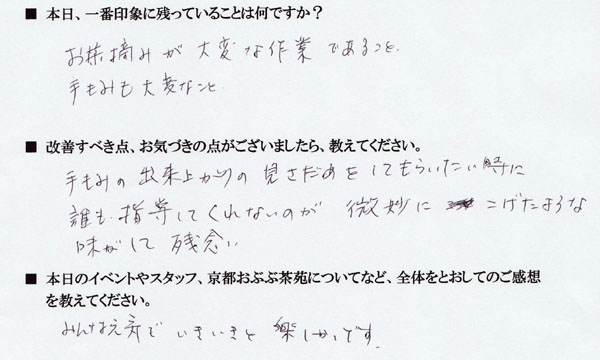 ■ 本日、一番印象に残っていることは何ですか？
お茶摘みが大変な作業であること、
手もみも大変なこと
■ 改善すべき点、お気づきの点がございましたら、教えてください。
手もみの出来上がりの見さだめをしてもらいたい時に
誰も指導してくれないのが微妙にこげたような
味がして残念い
■ 本日のイベントやスタッフ、京都おぶぶ茶苑についてなど、全体をとおしてのご感想
を教えてください。
みんな元気でいきいきと楽しかったです。